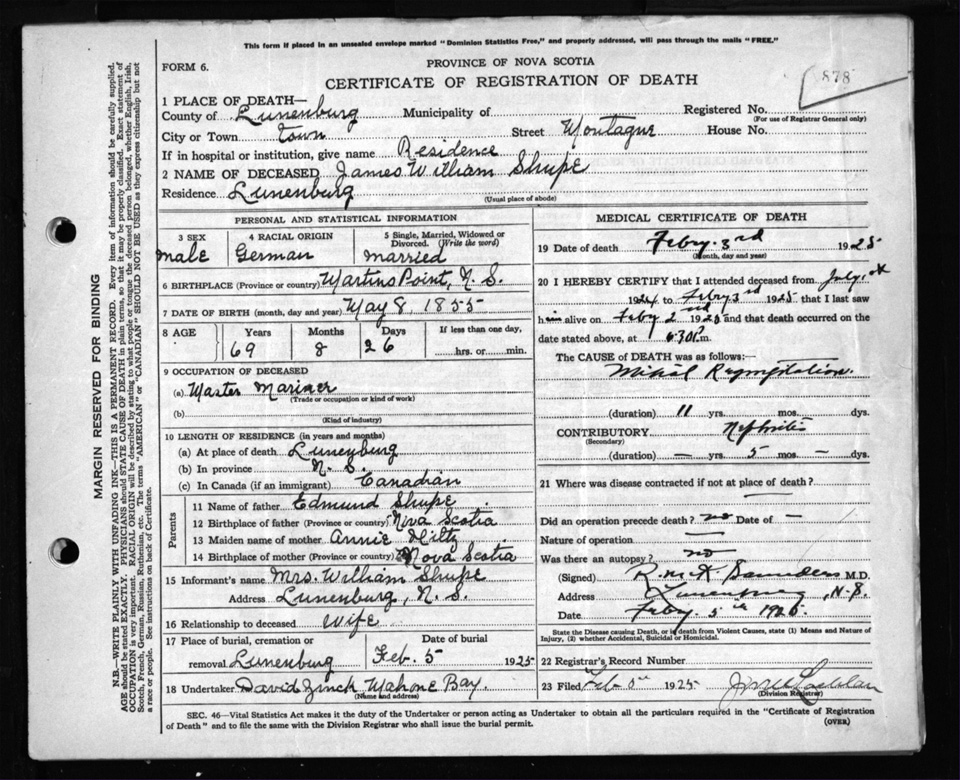 This form if placed in an unsealed envelope marked "Dominion Statistics Free," and properly addressed, will pass through the mails "FREE."
FORM 6.
PROVINCE OF NOVA SCOTIA
CERTIFICATE OF REGISTRATION OF DEATH
878
1 PLACE OF DEATH—
County of Lunenburg Municipality of Registered No.
(For use of Registrar General only)
City or Town town Street Montague House No.
If in hospital or institution, give name Residence
2 NAME OF DECEASED James William Shupe
Residence Lunenburg
(Usual place of abode)
PERSONAL AND STATISTICAL INFORMATION
3 SEX 4 RACIAL ORIGIN 5 Single, Married, Widowed or Divorced. (Write the word)
male German married
6 BIRTHPLACE (Province or country) Martins Point, N. S.
7 DATE OF BIRTH (month, day and year) May 8, 1855
8 AGE Years Months Days If less than one day,
69 8 26 hrs. or min.
9 OCCUPATION OF DECEASED
(a) Master Mariner
(Trade or occupation or kind of work)
(b)
(Kind of industry)
10 LENGTH OF RESIDENCE (in years and months)
(a) At place of death Lunenburg
(b) In province N. S.
(c) In Canada (if an immigrant) Canadian
Parents
11 Name of father Edmund Shupe
12 Birthplace of father (Province or country) Nova Scotia
13 Maiden name of mother Annie Hiltz
14 Birthplace of mother (Province or country) Nova Scotia
15 Informant's name Mrs. William Shupe
Address Lunenburg, N. S.
16 Relationship to deceased Wife
17 Place of burial, cremation or Date of burial
removal Lunenburg Feb. 5 1925
18 Undertaker David Zinck Mahone Bay.
(Name and address)
MEDICAL CERTIFICATE OF DEATH
19 Date of death Febry. 3rd 1925
(Month, day and year)
20 I HEREBY CERTIFY that I attended deceased from July, 1st
1924 to Febry 3rd 1925 that I last saw
him alive on Febry 2nd 1925 and that death occurred on
date stated above, at 6:30 P.m.
The CAUSE of DEATH was as follows:—
Mitral Regurgitation.
(duration) 11 yrs. mos. dys.
CONTRIBUTORY Nephritis
(Secondary)
(duration) — yrs. 5 mos. — dys.
21 Where was disease contracted if not at place of death? —
Did an operation precede death? no Date of —
Nature of operation —
Was there an autopsy? no
(Signed) Saunders M.D.
Address Lunenburg, N.S.
Date Febry. 5th 1925.
State the Disease causing Death, or in death from Violent Causes, state (1) Means and Nature of Injury, (2) whether Accidental, Suicidal or Homicidal.
22 Registrar's Record Number
23 Filed Feb 1925
(Division Registrar)
SEC. 46—Vital Statistics Act makes it the duty of the Undertaker or person acting as Undertaker to obtain all the particulars required in the "Certificate of Registration
of Death" and to file the same with the Division Registrar who shall issue the burial permit.
(OVER)
MARGIN RESERVED FOR BINDING
N.B.—WRITE PLAINLY WITH UNFADING INK—THIS IS A PERMANENT RECORD. Every item of information should be carefully supplied.
AGE should be stated EXACTLY. PHYSICIANS should STATE CAUSE OF DEATH in plain terms, so that it may be properly classified. Exact statement of
OCCUPATION is very important. RACIAL ORIGIN will be described by stating to what people or tongue the deceased person belonged, whether English, Irish,
Scotch, French, German, Russian, Ruthenian, etc. The terms "AMERICAN" or "CANADIAN" SHOULD NOT BE USED as they express citizenship but not
a race or people. See instructions on back of Certificate.